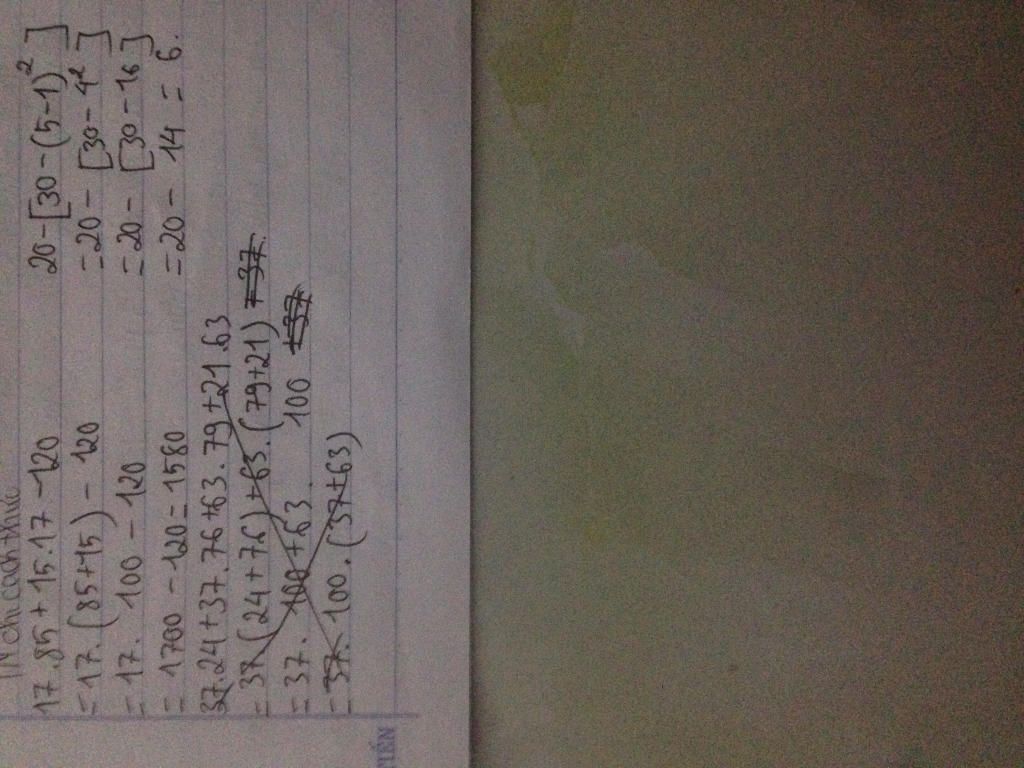 17.85 + 15.17 - 120
= 17.(85+15) - 120
= 17. 100 - 120
= 1700 - 120 = 1580
20 - [30 - (5-1)² ]
= 20 - [30 - 4² ]
= 20 - [30 - 16]
= 20 - 14 = 6.
37.24+37.76+63.79+21.63
= 37(24+76)+63.(79+21) = 37
= 37. 100 + 63. 100
= 37. 100. (37+63)
TIẾN